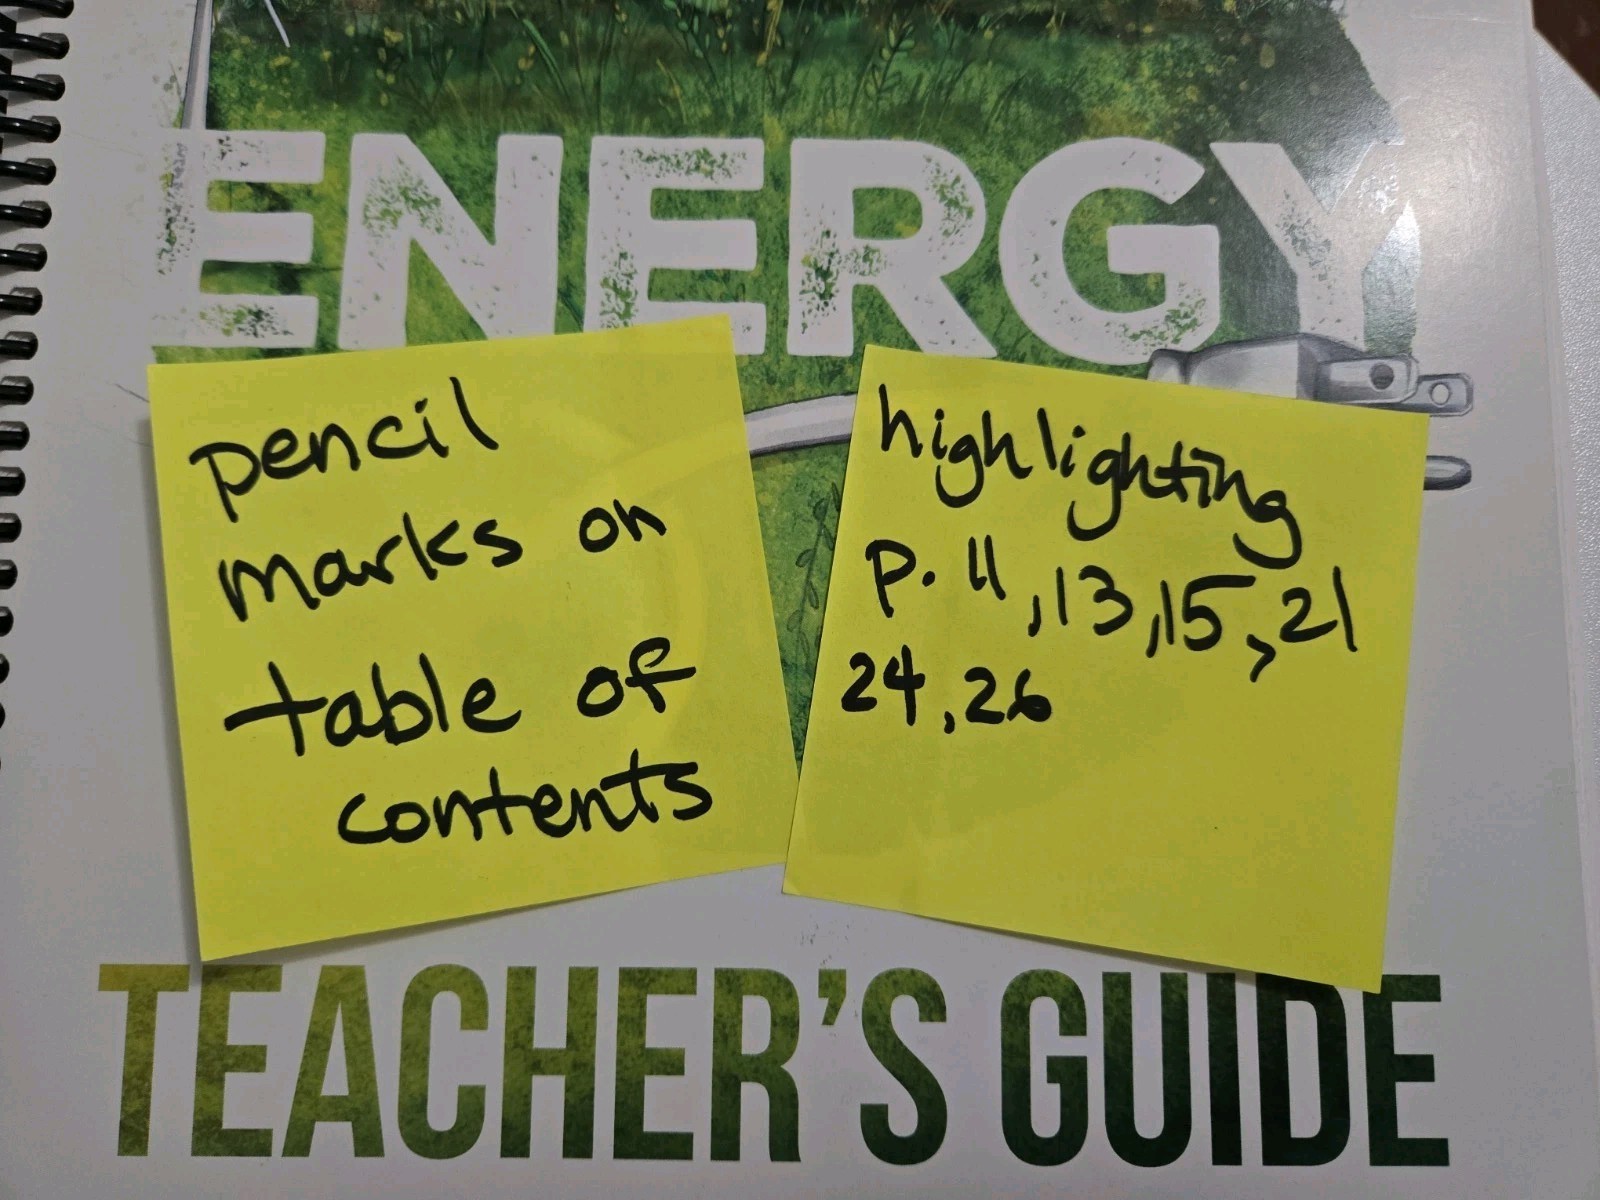 ENERGY
pencil
marks on
table of
contents
highlighting
p. 11, 13, 15, 21
24, 26
TEACHER'S GUIDE